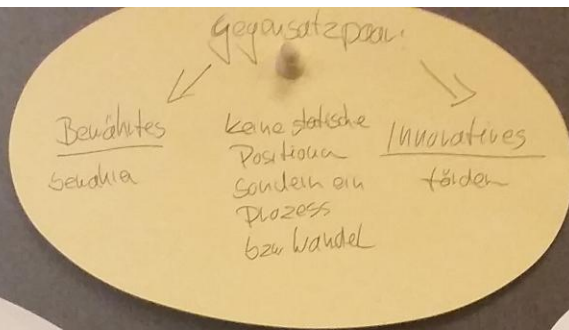 Gegensatzpaar:
Bewährtes
bewahren
keine statische
Position
sondern ein
Prozess
bzw Wandel
Innovatives
fördern